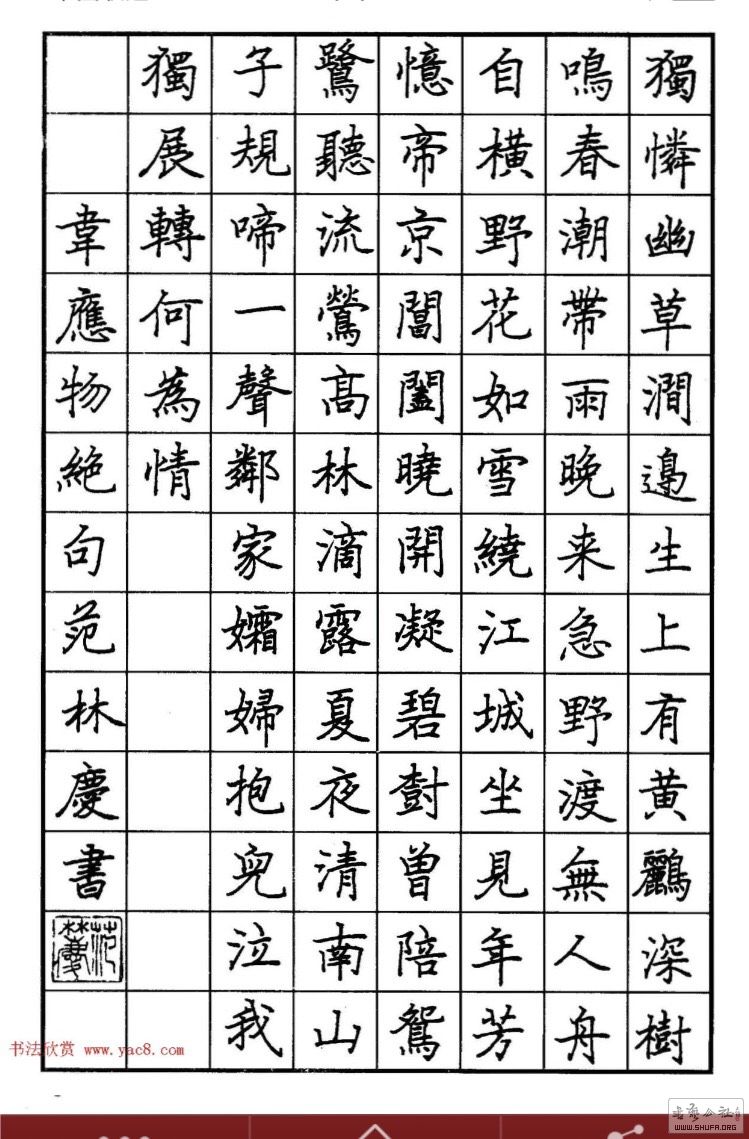 獨憐幽草澗邊生上有黃鸝深樹
鳴春潮帶雨晚来急野渡無人舟
自橫野花如雪繞江城坐見年芳
憶帝京閶闔曉開凝碧樹曾陪鴛
鷺聽流鶯高林滴露夏夜清南山
子規啼一聲鄰家孀婦抱兒泣我
獨展轉何為情
韋應物絕句范林慶書
范林慶
书法欣赏 www.yac8.com
WWW.SHUFA.ORG